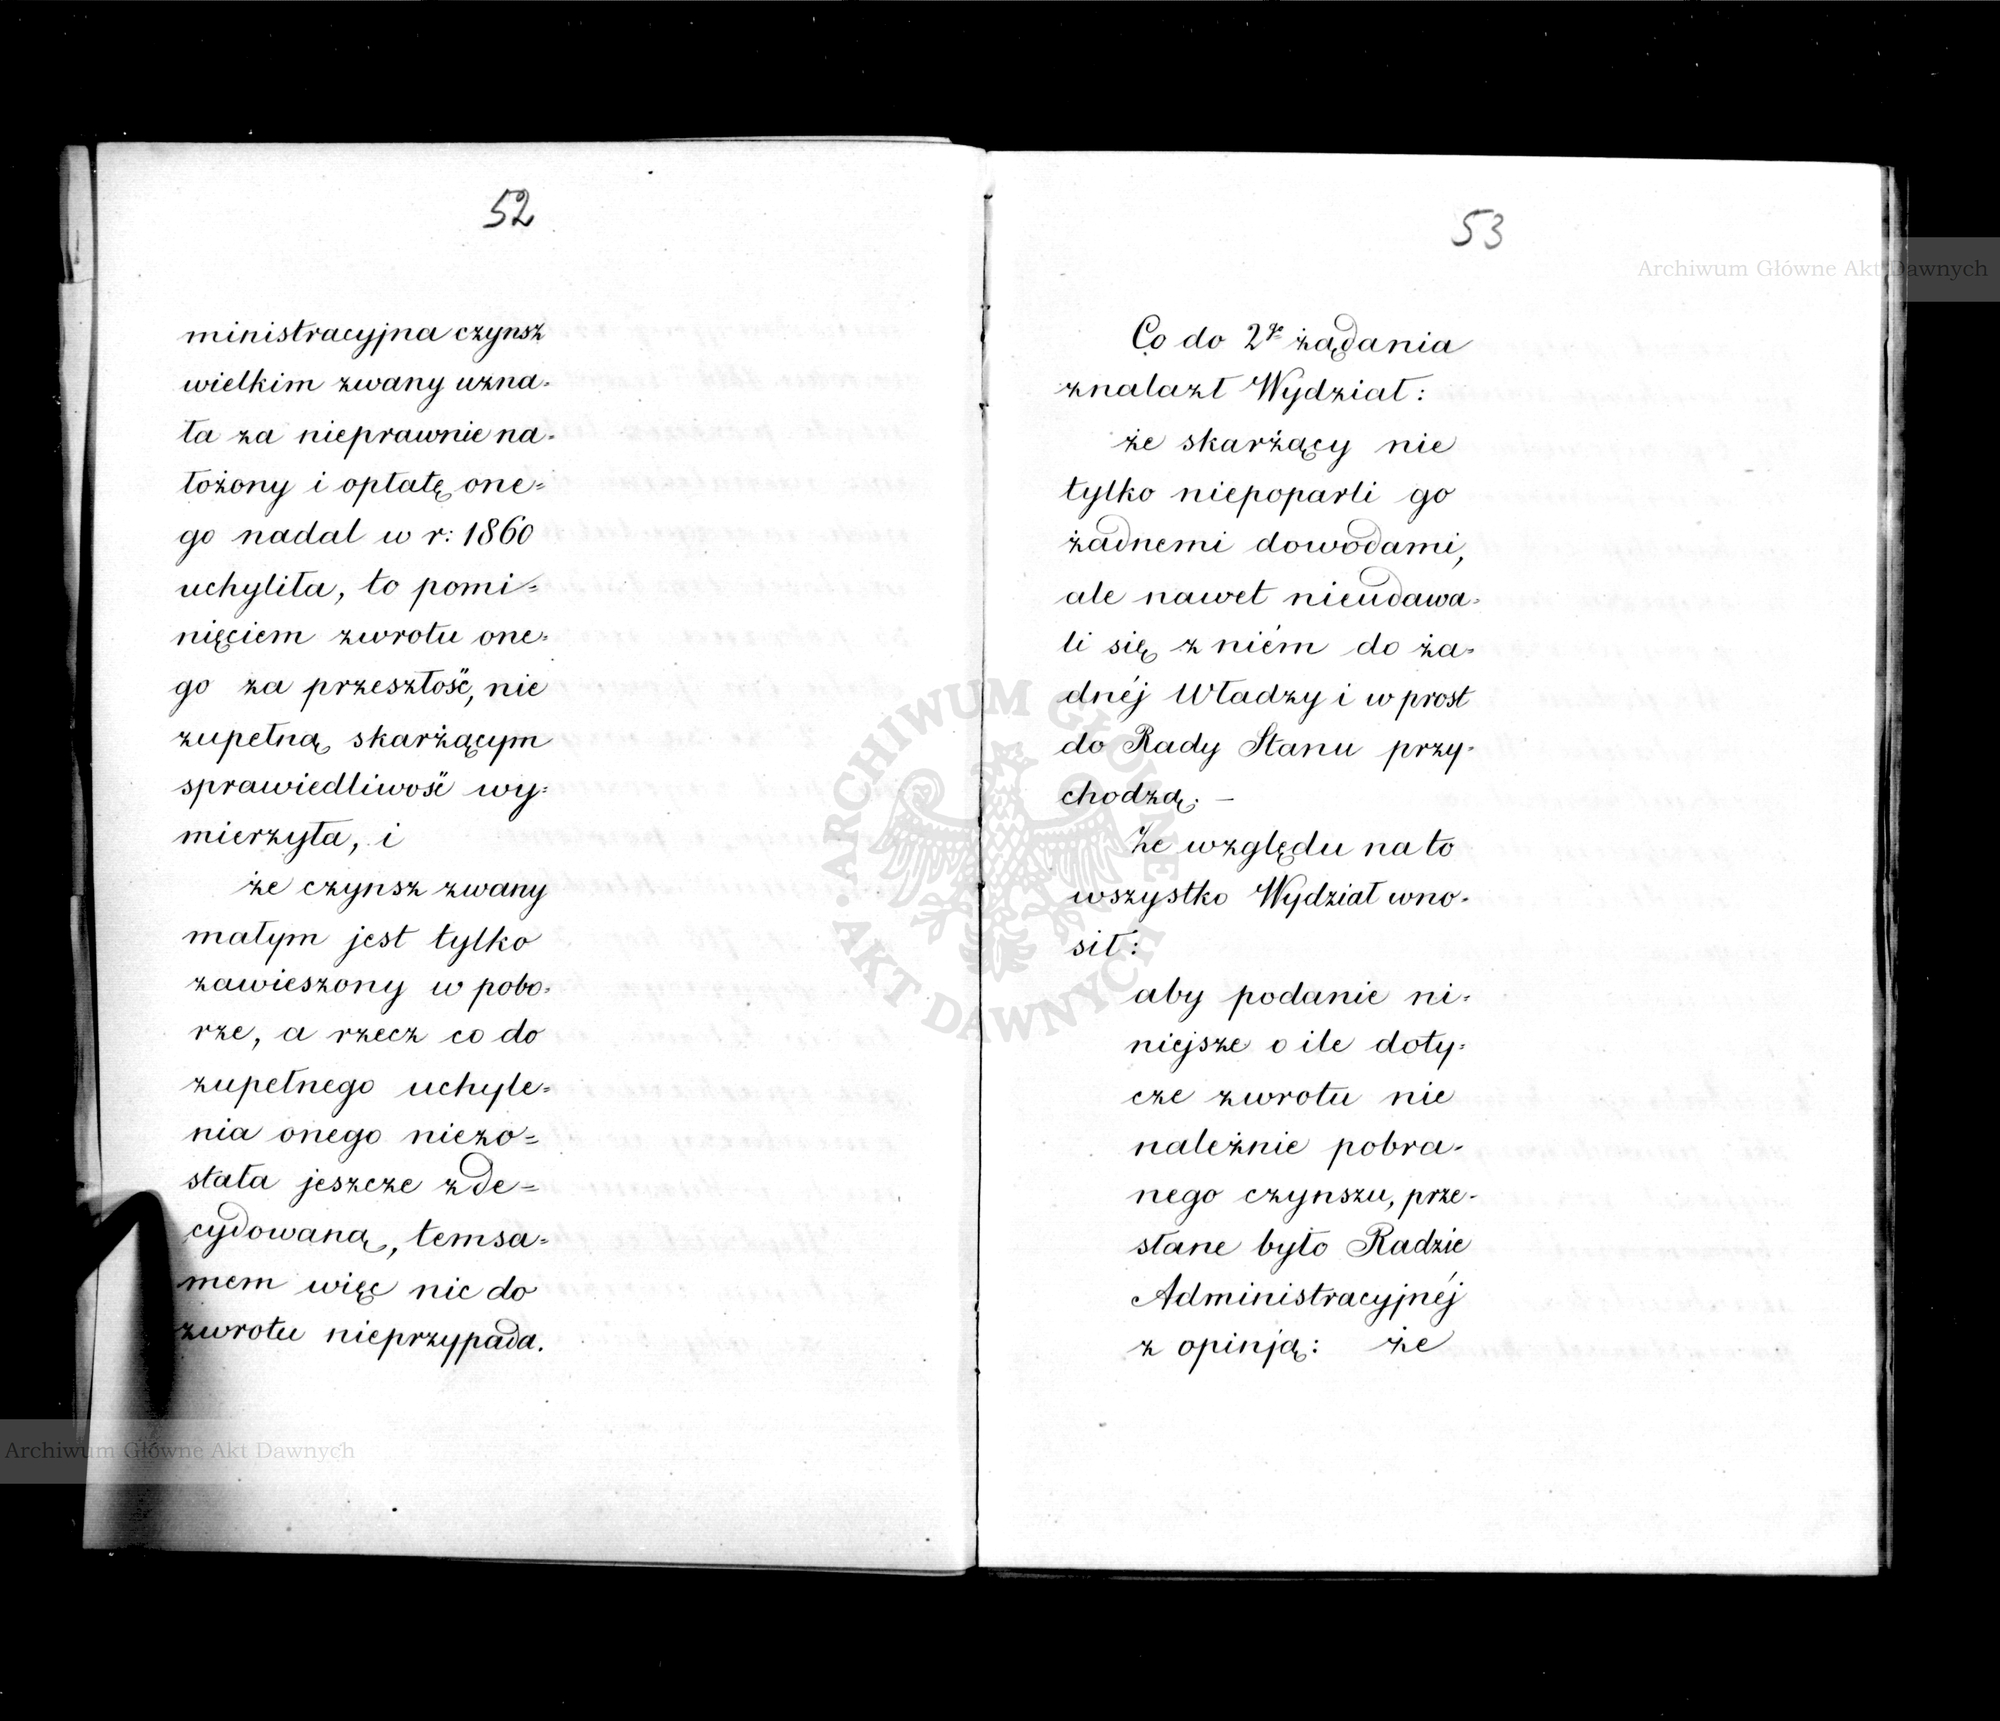 52
ministracyjna czynsz
wielkim zwany uzna-
ła za nieprawnie na-
łożony i opłatę one-
go nadal w r: 1860
uchyliła, to pomi-
nięciem zwrotu one-
go za przeszłość, nie
zupełną skarżącym
sprawiedliwość wy-
mierzyła, i
że czynsz zwany
małym jest tylko
zawieszony w pobo-
rze, a rzecz co do
zupełnego uchyle-
nia onego niezo-
stała jeszcze zde-
cydowaną, temsa-
mem więc nic do
zwrotu nieprzypada.
53
Co do 2go żądania
znalazł Wydział:
że skarżący nie
tylko niepoparli go
żadnemi dowodami,
ale nawet nieudawa-
li się z niém do ża-
dnéj Władzy i w prost
do Rady Stanu przy-
chodzą. –
Ze względu na to
wszystko Wydział wno-
sił:
aby podanie ni-
niejsze o ile doty-
cze zwrotu nie
należnie pobra-
nego czynszu, prze-
słane było Radzie
Administracyjnéj
z opinją: że
Archiwum Główne Akt Dawnych
ARCHIWUM GŁÓWNE • AKT DAWNYCH •
Archiwum Główne Akt Dawnych